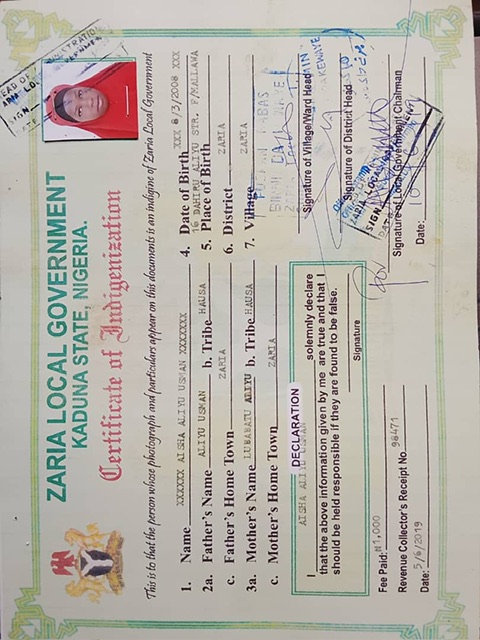 ZARIA LOCAL GOVERNMENT
KADUNA STATE, NIGERIA.
Certificate of Indigenization
This is to that the person whose photograph and particulars appear on this documents is an indigine of Zaria Local Government
1. Name XXXXXX AISHA ALIYU USMAN XXXXXXX
2a. Father's Name ALIYU USMAN b. Tribe HAUSA
c. Father's Home Town ZARIA
3a. Mother's Name LUBABATU ALIYU b. Tribe HAUSA
c. Mother's Home Town ZARIA
4. Date of Birth XXX 8/3/2008 XXX
5. Place of Birth 16 DAHIRU ALIYU STR. F/MALLAWA
6. District ZARIA
7. Village ZARIA
DECLARATION
I AISHA ALIYU USMAN solemnly declare
that the above information given by me are true and that I
should be held responsible if they are found to be false.
Signature
Fee Paid: ₦1,000
Revenue Collector's Receipt No. 98471
Date: 5/6/2019
Signature of Village/Ward Head
Signature of District Head
ZARIA LOCAL
SIGN
DATE
Signature of Local Government Chairman
Date:
HEAD OF ADMINISTRATION
SIGN